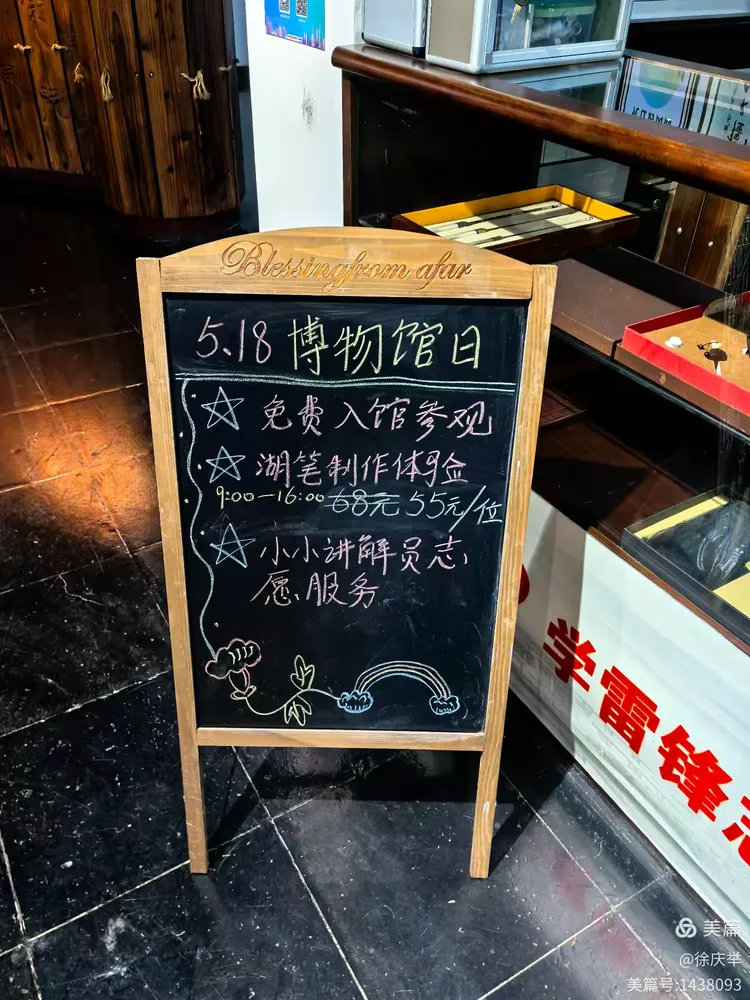 Blessingfrom afar
5.18 博物馆日
免费入馆参观
湖笔制作体验
9:00—16:00 68元 55元/位
小小讲解员志
愿服务
学雷锋志
美篇
@徐庆举
美篇号:1438093